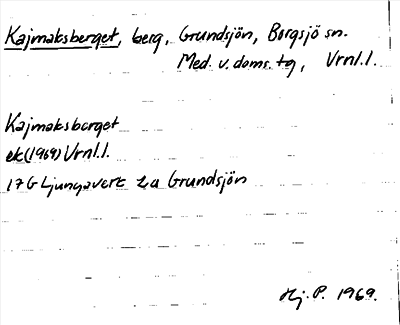 Kajmaksberget, berg, Grundsjön, Borgsjö sn.
Med. v. doms. tg, Vrnl.l.
Kajmaksberget
ek (1969) Vrnl.l.
17G Ljungaverk 2a Grundsjön
Hj. P. 1969.